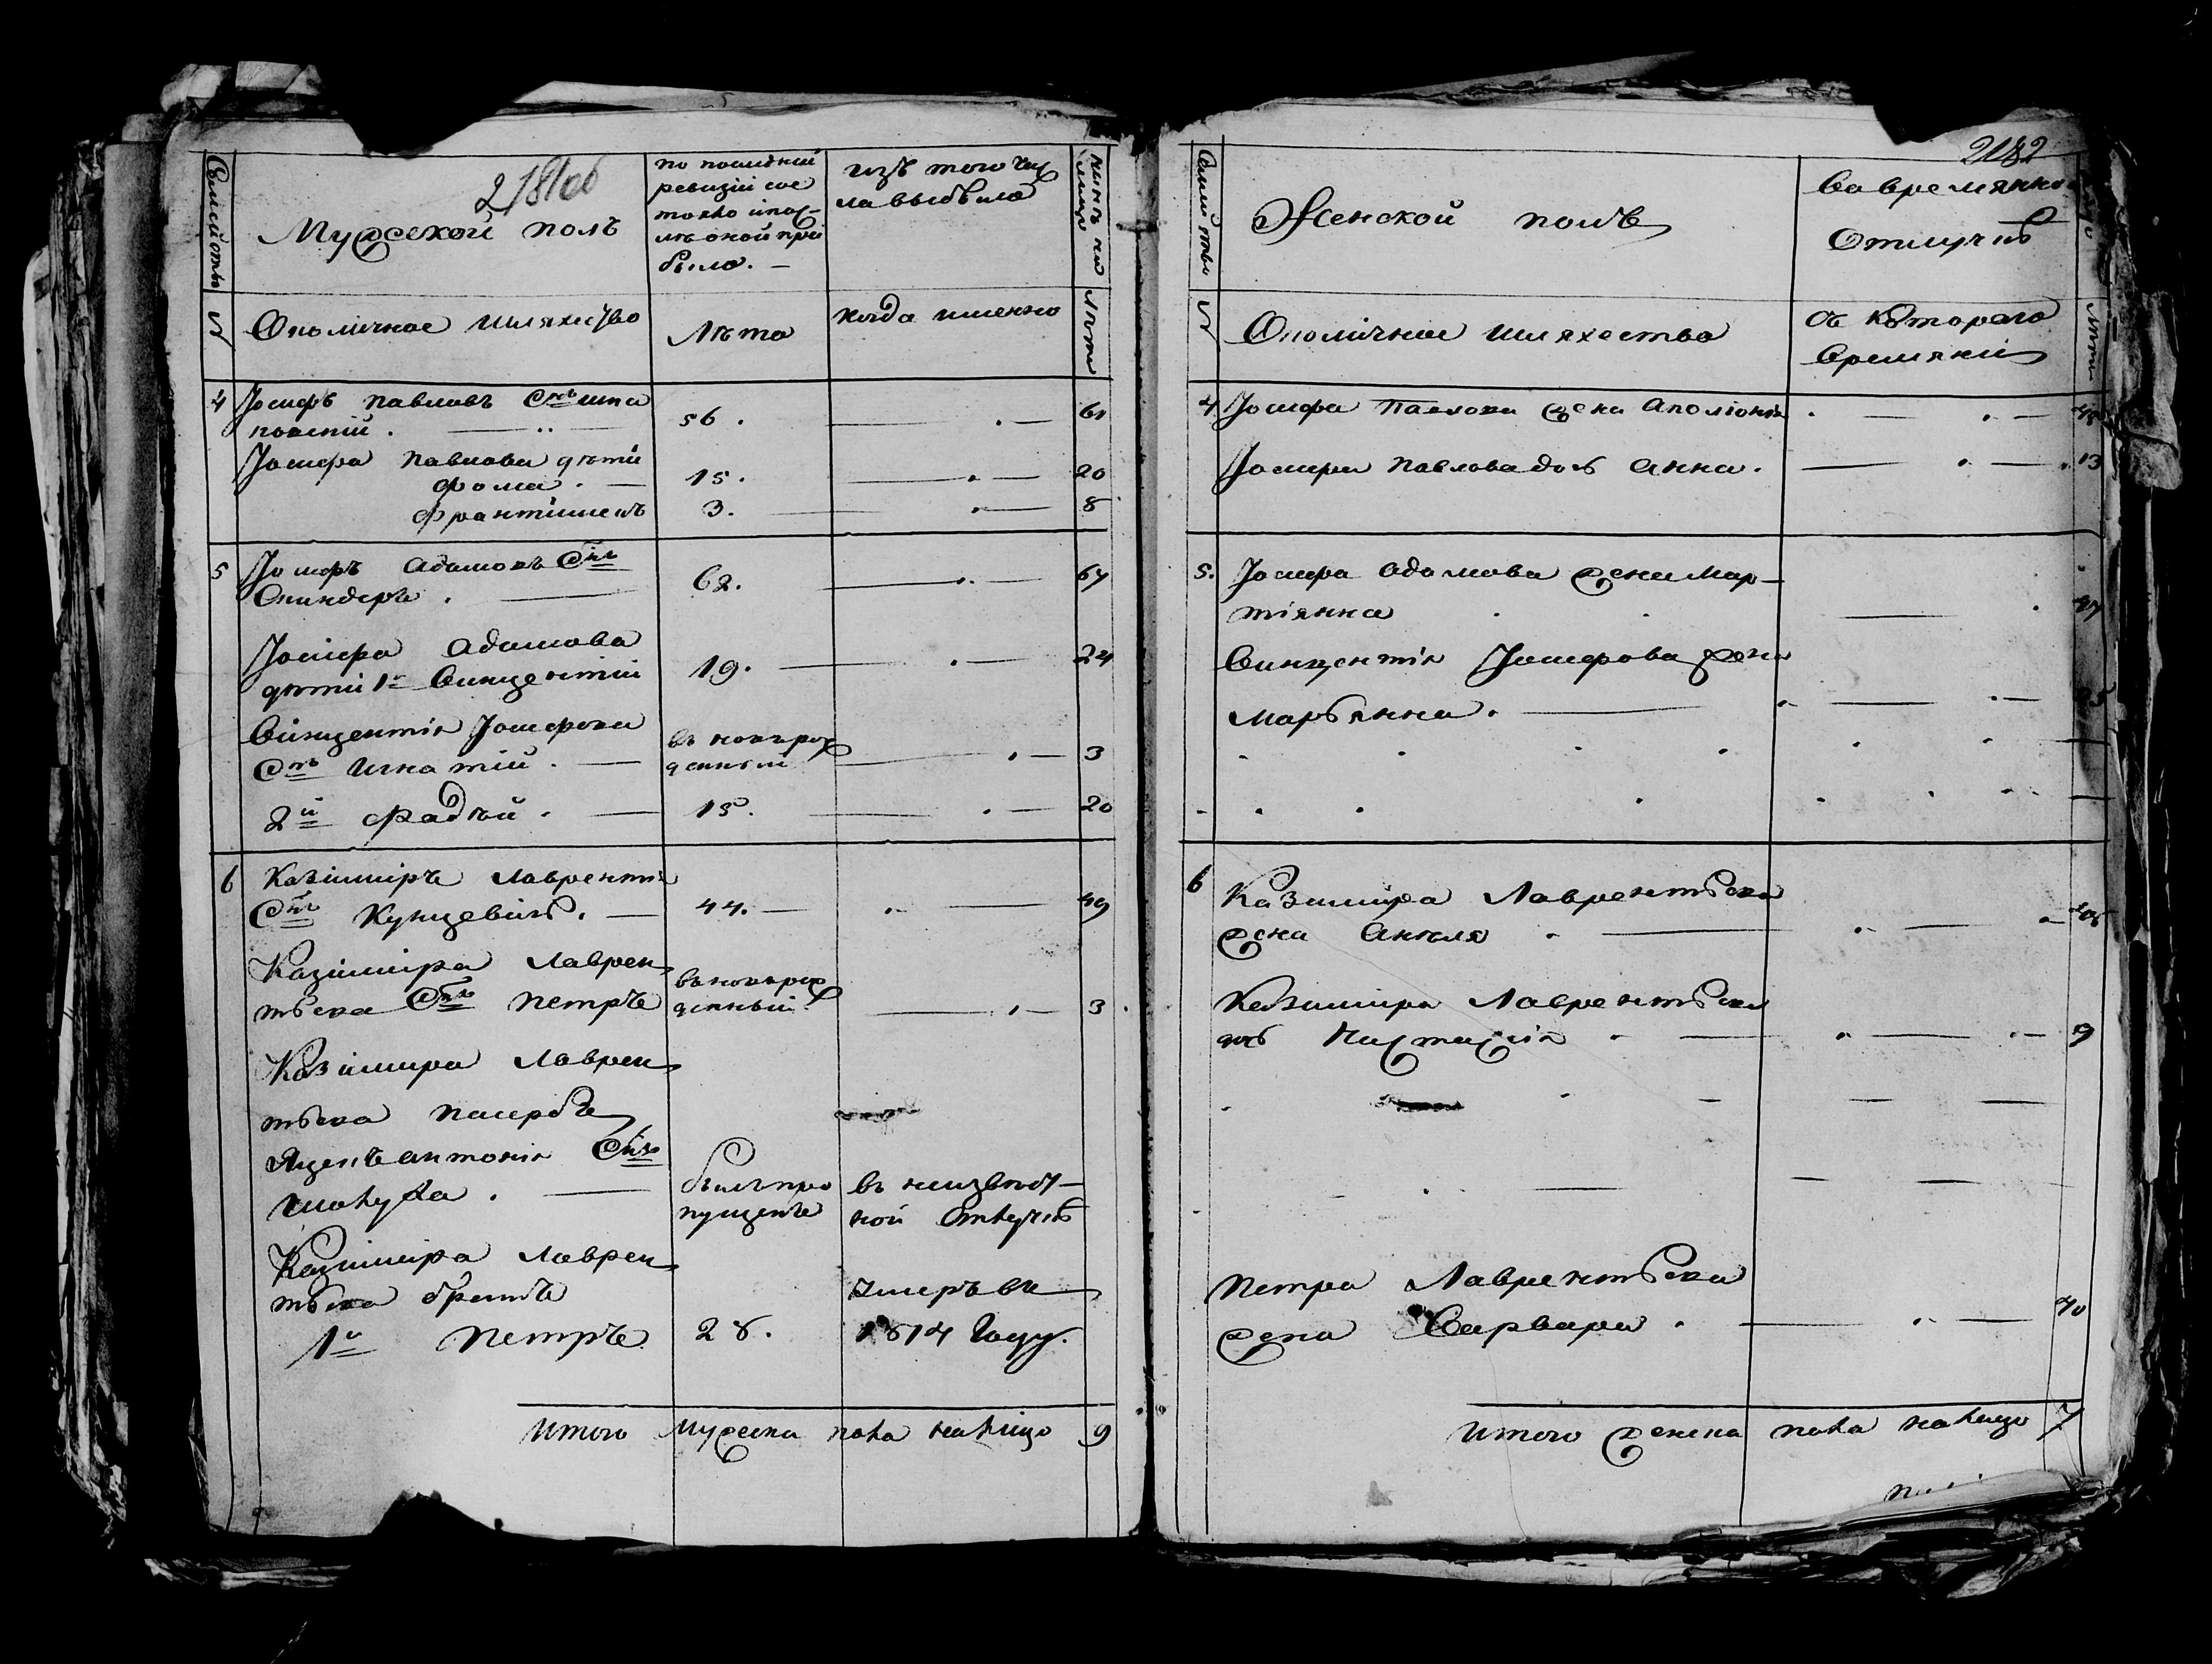 2181об
Семействы
Мужеской полъ
по последней
ревизіи сос
тояло и пос-
ле оной при
было. —
изъ того чис
ла выбыло
ныне на
лицо
№
Околичное шляхество
Лета
когда именно
Лета
4 Іосифъ Павловъ Снъ
повскій . — 56 . — 61
Іосифа Павлова дети
Фома . — 15 . — 20
Францишекъ 3 . — 8
5 Іосифъ Адамовъ Снъ
Скиндеръ . — 62 . — 67
Іосифа Адамова
дети 1й Винцентій 19 . — 24
Винцентія Іосифова
Снъ Игнатій . — въ новорож
денный — 3
2й Фадѣй . — 15 . — 20
6 Казиміръ Лаврентія
Снъ Кунцевичь . — 44 . — 49
Казиміра Лаврен
тьева Снъ Петръ въ новорож
денный — 3
Казиміра Лаврен
тьева пасербъ
Яцекъ Антонія Снъ
былъ про
пущенъ
въ неизвест-
ной отлучкѣ
Казиміра Лаврен
тьева братъ
1й Петръ 28 .
умеръ въ
1814 году.
Итого мужеска пола налицо 9
2182
Семейство
Женской полъ
Во временно
Отлучкѣ
№
Околичное шляхества
Съ котораго
времяни
Лета
4 Іосифа Павлова жена Аполіонія
Іосифа Павлова дочь Анна . — 13
5. Іосифа Адамова жена Мар-
тіянна . — 47
Винцентія Іосифова жена
Марьянна . — 25
6 Казиміра Лаврентьева
жена Анеля . —
Казиміра Лаврентьева
дочь Настасія — 9
Петра Лаврентьева
жена Варвара . — 40
Итого женска пола налицо 7